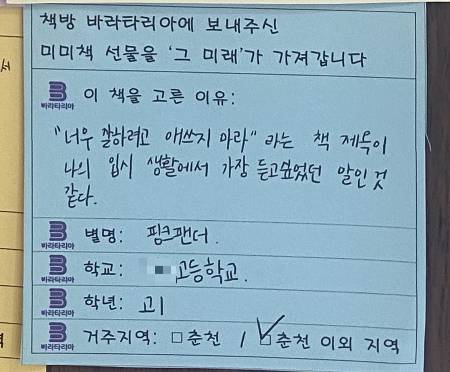 책방 바라타리아에 보내주신
미미책 선물을 '그 미래'가 가져갑니다
바라타리아 이 책을 고른 이유:
"너무 잘하려고 애쓰지 마라" 라는 책 제목이
나의 입시 생활에서 가장 듣고싶었던 말인 것
같다.
바라타리아 별명: 핑크팬더.
바라타리아 학교: 고등학교.
바라타리아 학년: 고1
바라타리아 거주지역: □춘천 / ☑춘천 이외 지역